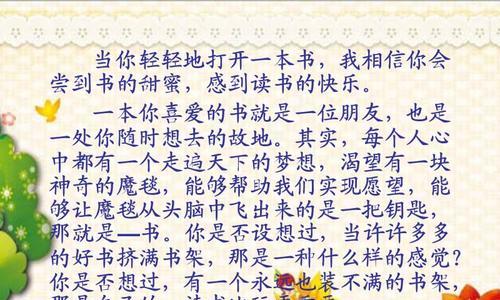 当你轻轻地打开一本书，我相信你会
尝到书的甜蜜，感到读书的快乐。
一本你喜爱的书就是一位朋友，也是
一处你随时想去的故地。其实，每个人心
中都有一个走遍天下的梦想，渴望有一块
神奇的魔毯，能够帮助我们实现愿望，能
够让魔毯从头脑中飞出来的是一把钥匙，
那就是—书。你是否设想过，当许许多多
的好书挤满书架，那是一种什么样的感觉？
你是否想过，有一个永远也装不满的书架，